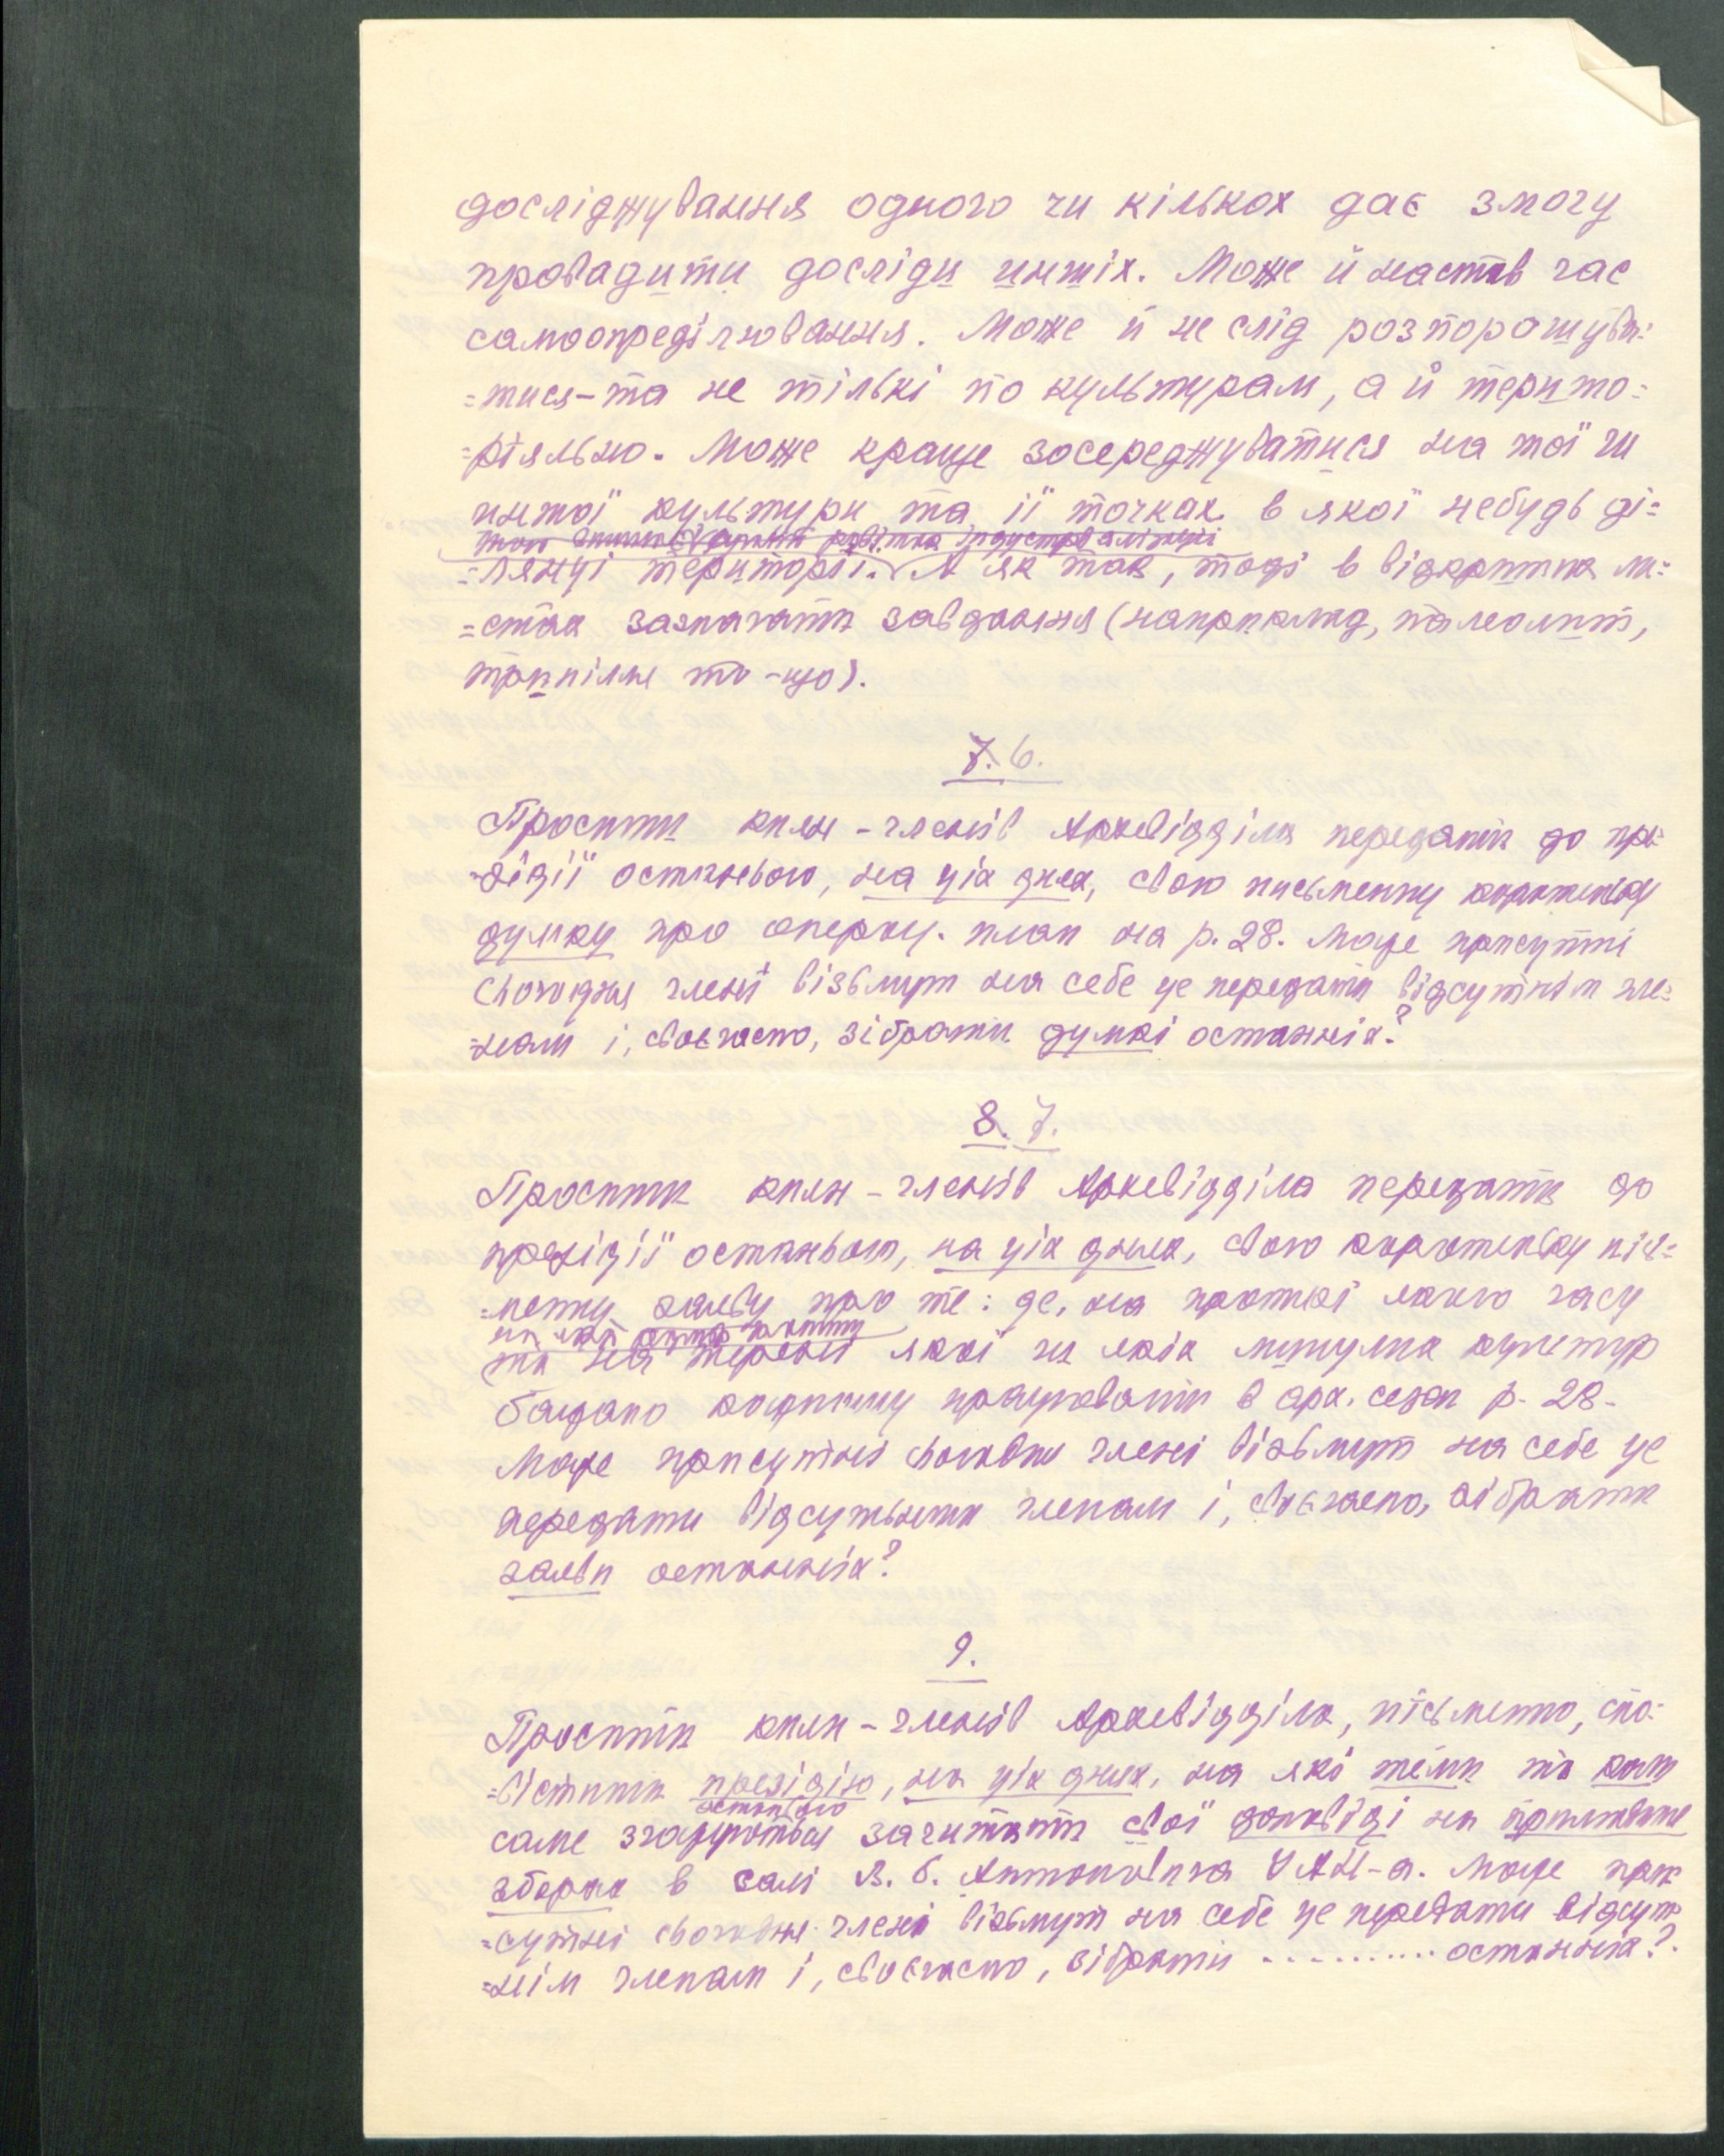 досліджування одного чи кількох дає змогу
провадити досліди инших. Може й настав час
самоопреділювання. Може й не слід розпорошува=
=тися-та не тількі по культурам, а й терито=
=ріяльно. Може краще зосереджуватися на тої чи
иншої культури та її точках в якої небудь ді=
=лянці територіі. А як так, тоді в відкритих ли=
=стах зазначати завдання (наприклад, палеолит,
трипілля то-що).
7. 6.
Просити киян-членів Археовідділа передати до пре=
=зідії останнього, на ціх днях, свою письменну коротеньку
думку про оперкц. план на р. 28. Може присутні
сьогодня члені візьмут на себе це передати відсутнім чле=
=нам і, своєчасно, зібрати думкі останніх?
8. 7.
Просити киян-членів Археовідділа передати до
презідії останнього, на ціх днях, свою коротеньку пісь=
=менну заяву про те: де, на протязі якого часу
та на терені якої чи якіх минулих культур
бажано кождному працювати в арх. сезон р. 28.
Може присутні сьогодни члені візьмут на себе це
передати відсутьним членам і, своєчасно, зібрати
заяви останніх?
9.
Просити киян-членів Археовідділа, пісьменно, спо=
=вістити презідію, на ціх днях, на які теми та коли
останнього
саме згаджуються зачитати свої доповіді на прилюдних
зборах в залі В. Б. Антоновича УАН-а. Може при=
=сутні сьогодня члені візьмут на себе це передати відсут=
=нім членам і, своєчасно, зібрати .......... останніх?.